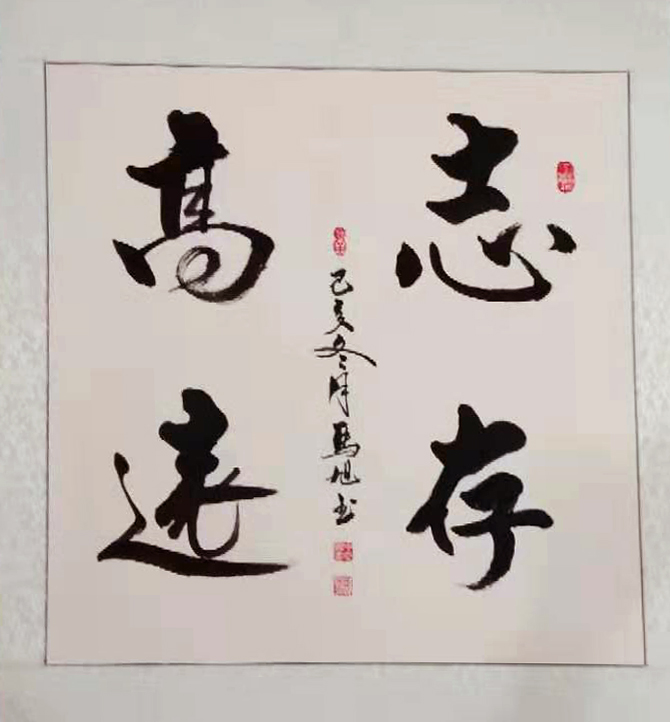 志存
高遠
己亥冬月馬旭书